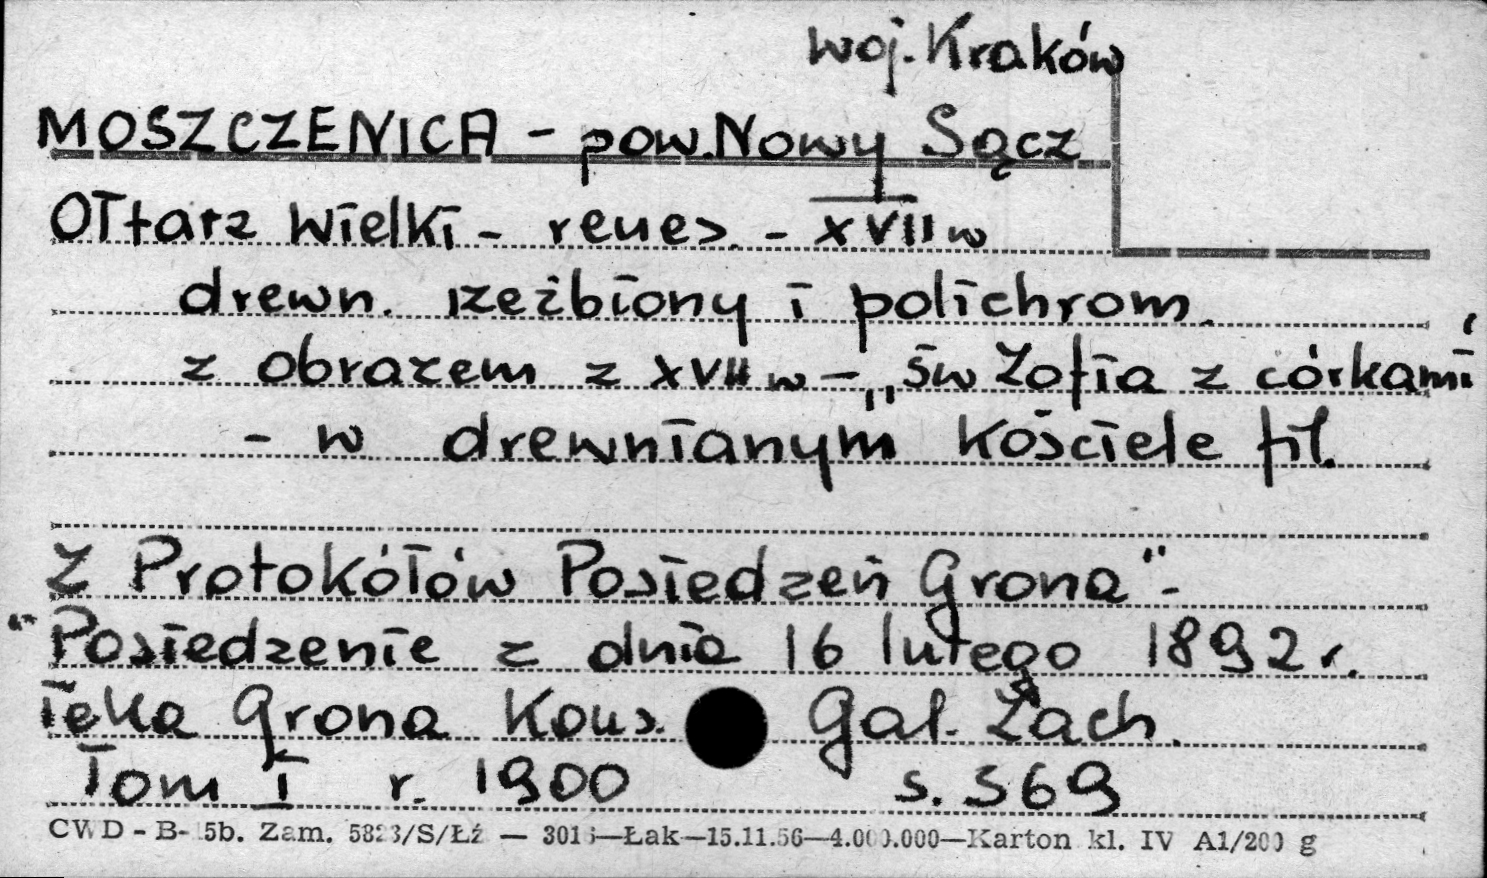 woj. Kraków
MOSZCZENICA - pow. Nowy Sącz
Ołtarz Wielki - renes. - XVII w
drewn. rzeźbiony i polichrom.
z obrazem z XVII w - „św Zofia z córkami"
- w drewnianym kościele fil.
Z Protokółów Posiedzeń Grona" -
"Posiedzenie z dnia 16 lutego 1892 r.
Teka Grona Kons. Gal. Zach.
Tom I r. 1900 s. 369
CWD - B- 5b. Zam. 5823/S/Łź — 3016—Łak—15.11.56—4.000.000—Karton kl. IV A1/200 g